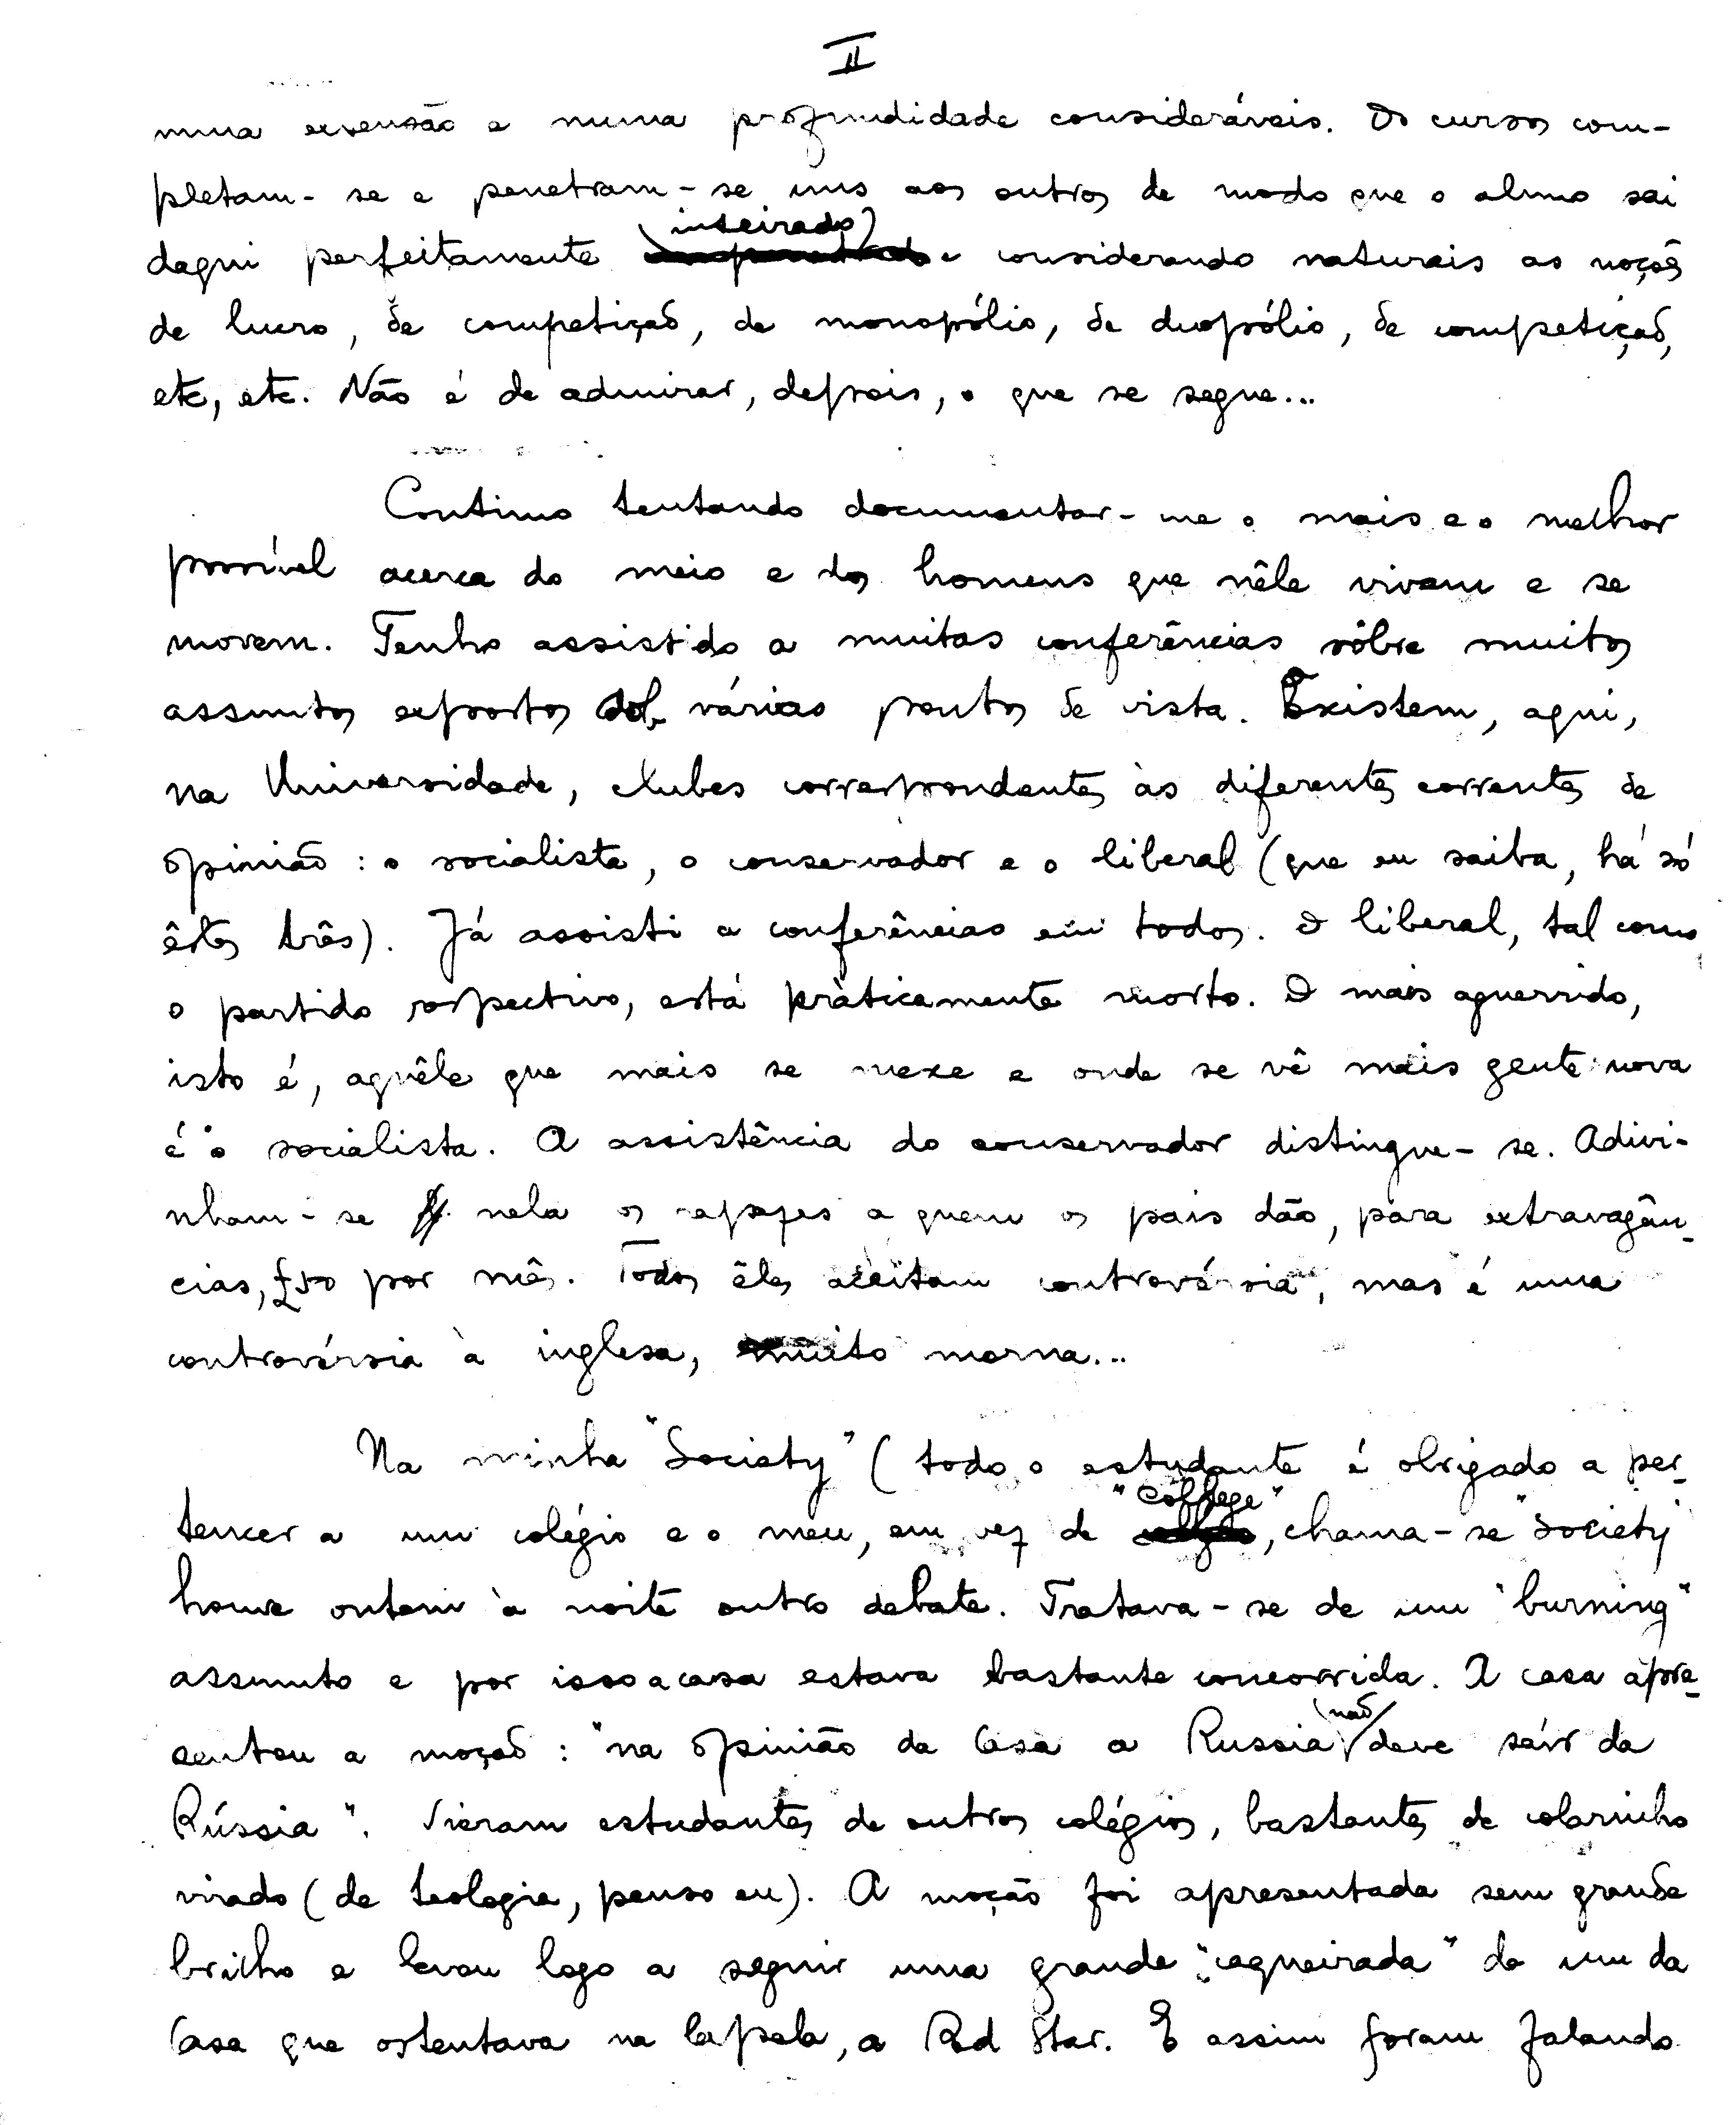 II
numa extensão e numa profundidade consideráveis. Os cursos com-
pletam-se e penetram-se uns aos outros de modo que o aluno sai
daqui perfeitamente inteirado e considerando naturais as noções
de lucro, de competição, de monopólio, de duopólio, de competição,
etc, etc. Não é de admirar, depois, o que se segue...
Continuo tentando documentar-me o mais e o melhor
possível acerca do meio e dos homens que nêle vivem e se
movem. Tenho assistido a muitas conferências sôbre muitos
assuntos expostos sob vários pontos de vista. Existem, aqui,
na Universidade, clubes correspondentes às diferentes correntes de
opinião: o socialista, o conservador e o liberal (que eu saiba, há só
êstes três). Já assisti a conferências em todos. O liberal, tal como
o partido respectivo, está pràticamente morto. O mais aguerrido,
isto é, aquêle que mais se mexe e onde se vê mais gente nova
é o socialista. A assistência do conservador distingue-se. Adivi-
nham-se nela os rapazes a quem os pais dão, para extravagân-
cias, £50 por mês. Todos êles aceitam controvérsia, mas é uma
controvérsia à inglesa, muito morna...
Na minha "Society" (todo o estudante é obrigado a per-
tencer a um colégio e o meu, em vez de "College", chama-se "Society"
houve ontem à noite outro debate. Tratava-se de um "burning"
assunto e por isso a casa estava bastante concorrida. A casa apre-
sentou a moção: "na opinião da Casa a Russia não deve saír da
Rússia". Vieram estudantes de outros colégios, bastantes de colarinho
virado (de teologia, penso eu). A moção foi apresentada sem grande
brilho e levou logo a seguir uma grande "caqueirada" de um da
Casa que ostentava na lapela, a Red Star. E assim foram falando